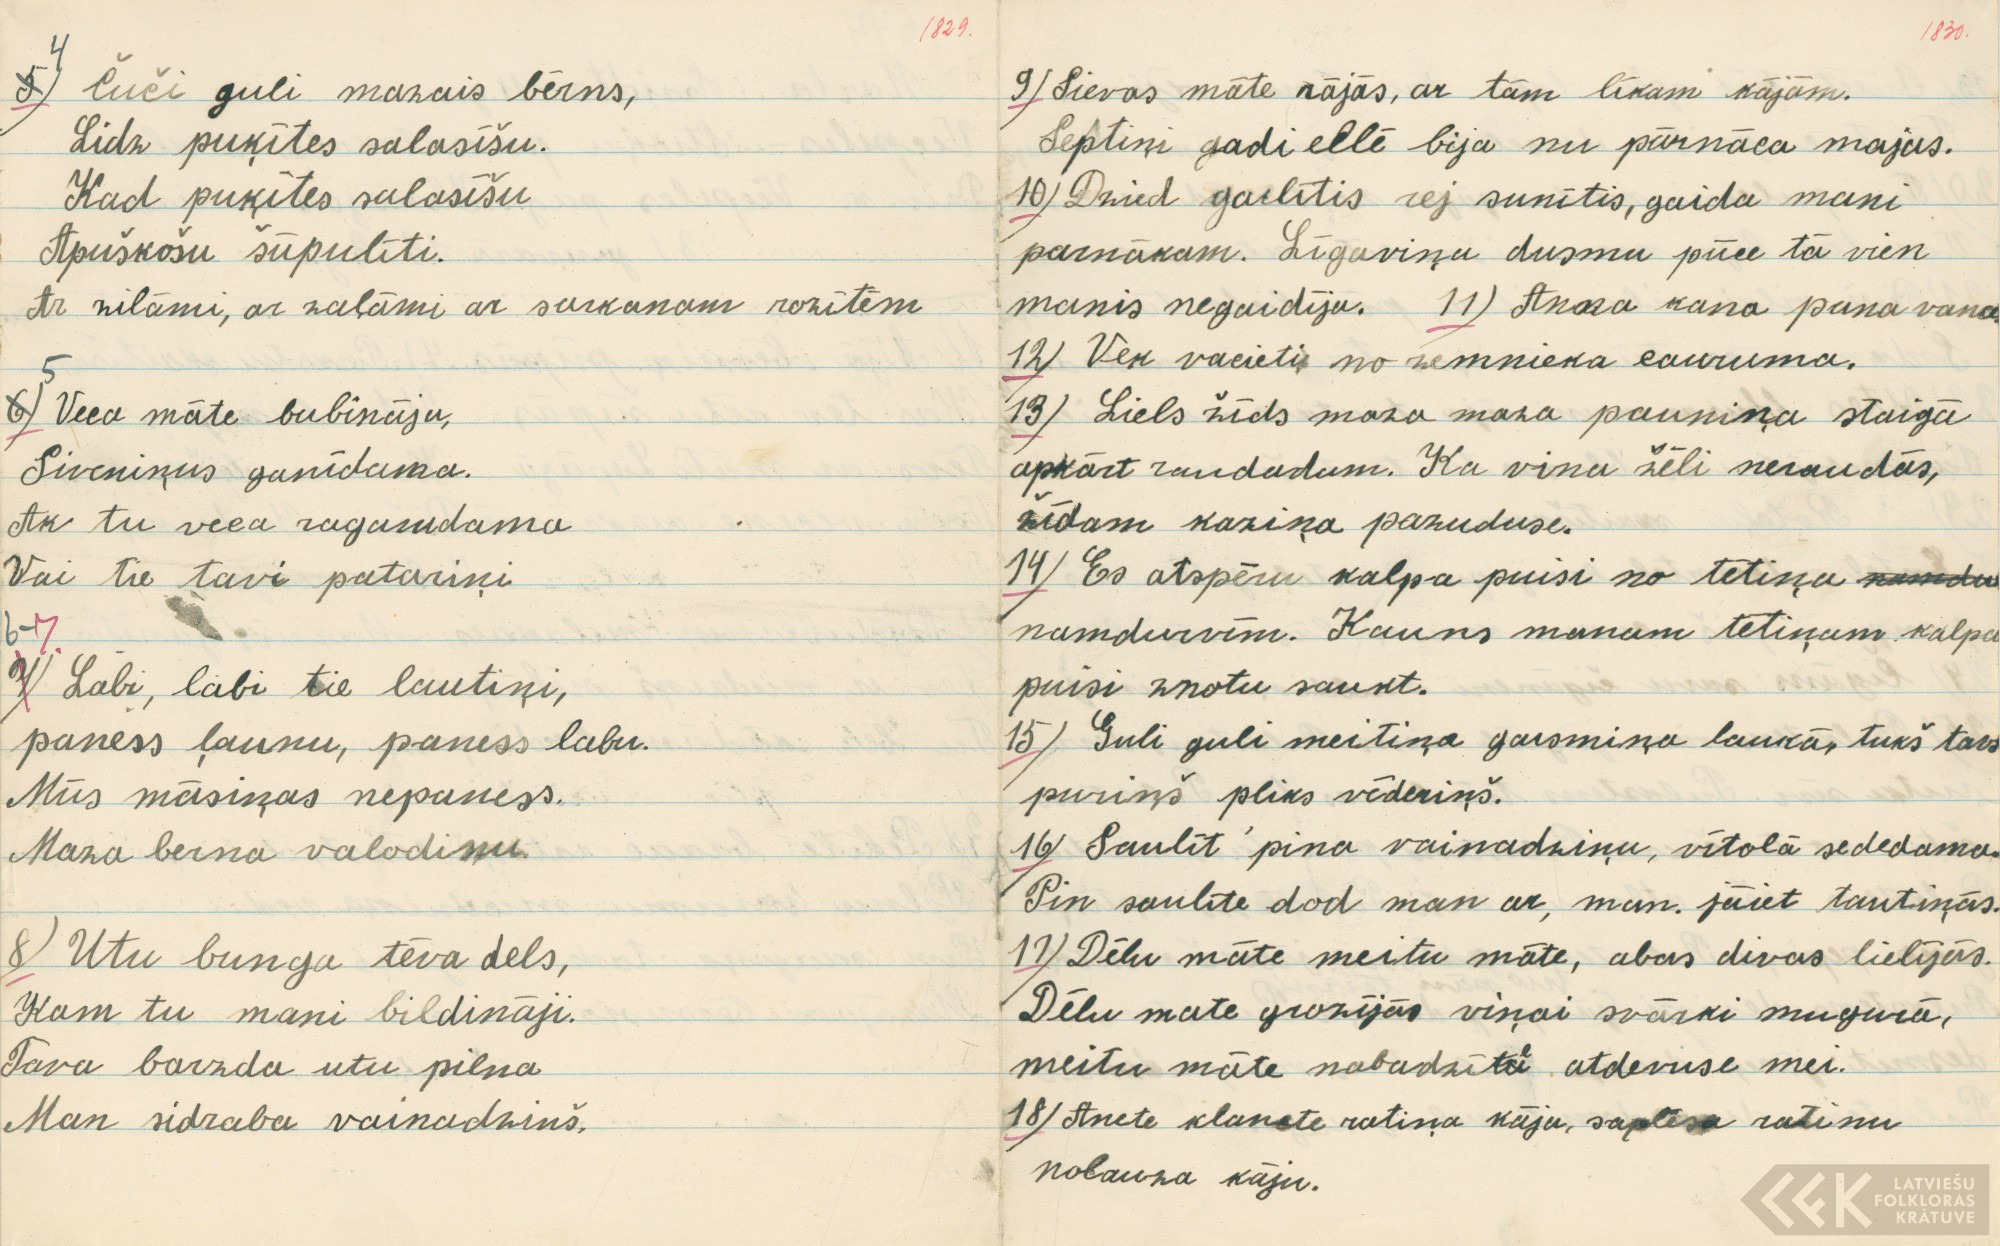 1829.
4
5) Čuči guli mazais bērns,
Lidz puķītes salasīšu.
Kad puķītes salasīšu
Apuškošu šūpulīti.
Ar zilāmi, ar zaļāmi ar sarkanam rozītēm
5
6) Veca māte bubināja,
Siveniņus ganīdama.
Ak tu veca
Vai tie tavi patariņi
6-7.
7) Labi, labi tie lautiņi,
paness ļaunu, paness labu.
Mūs māsiņas nepaness.
Maza berna valodiņu.
8) Utu bunga tēva dels,
Kam tu mani bildināji.
Tava barzda utu pilna
Man sidraba vainadziņš.
1830.
9) Sievas māte rājās, ar tām līkam kājām.
Septiņi gadi ellē bija nu pārnāca majas.
10) Dzied gailītis rej sunītis, gaida mani
parnākam. Līgaviņa dusmu pūce tā vien
manis negaidīja. 11) Anna kana pana vana.
12) Vek vacieti no zemnieka cauruma.
13) Liels žīds maza maza pauniņa staigā
apkārt raudadam. Ka viņa žēli neraudās,
žīdam kaziņa pazuduse.
14) Es atspēru kalpa puisi no tētiņa namdu
namdurvīm. Kauns manam tētiņam kalpa
puisi znotu saukt.
15) Guli guli meitiņa garsmiņa laukā, tukš tavs
puriņš pliks vēderiņš.
16) Saulīt' pina vainadziņu, vītolā sededama.
Pin saulīte dod man ar, man. jāiet tautiņās.
17) Dēlu māte meitu māte, abas divas lielījās.
Dēlu mate grozījās viņai svārki mugurā,
meitu māte nabadzīte atdevuse mei.
18) Anete klanete ratiņa kāja, saplēsa ratiņu
nolauza kāju.
LATVIEŠU
FOLKLORAS
KRĀTUVE